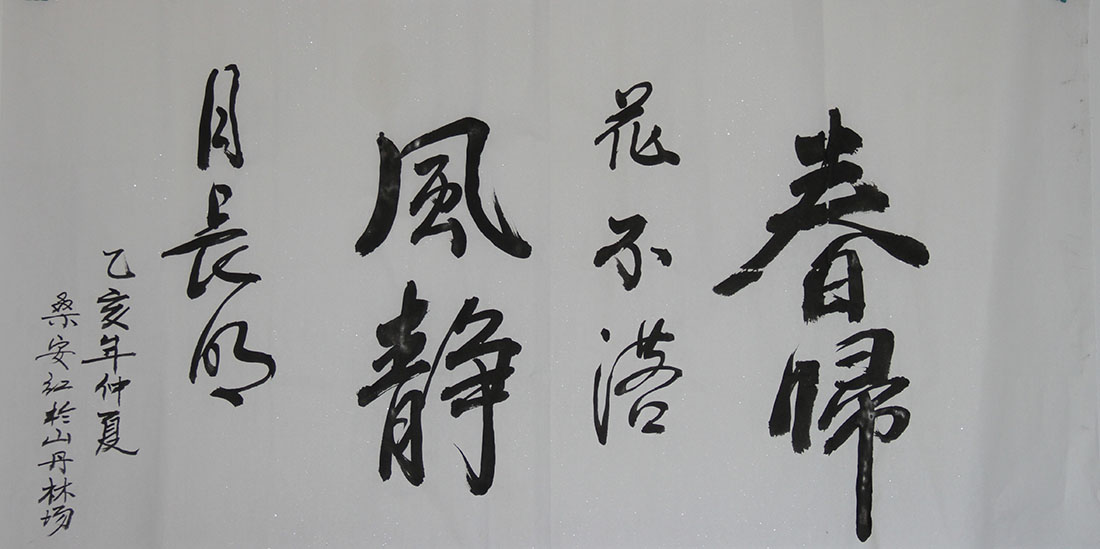 春歸
花不落
風静
月長明
乙亥年仲夏
桑安红於山丹林场